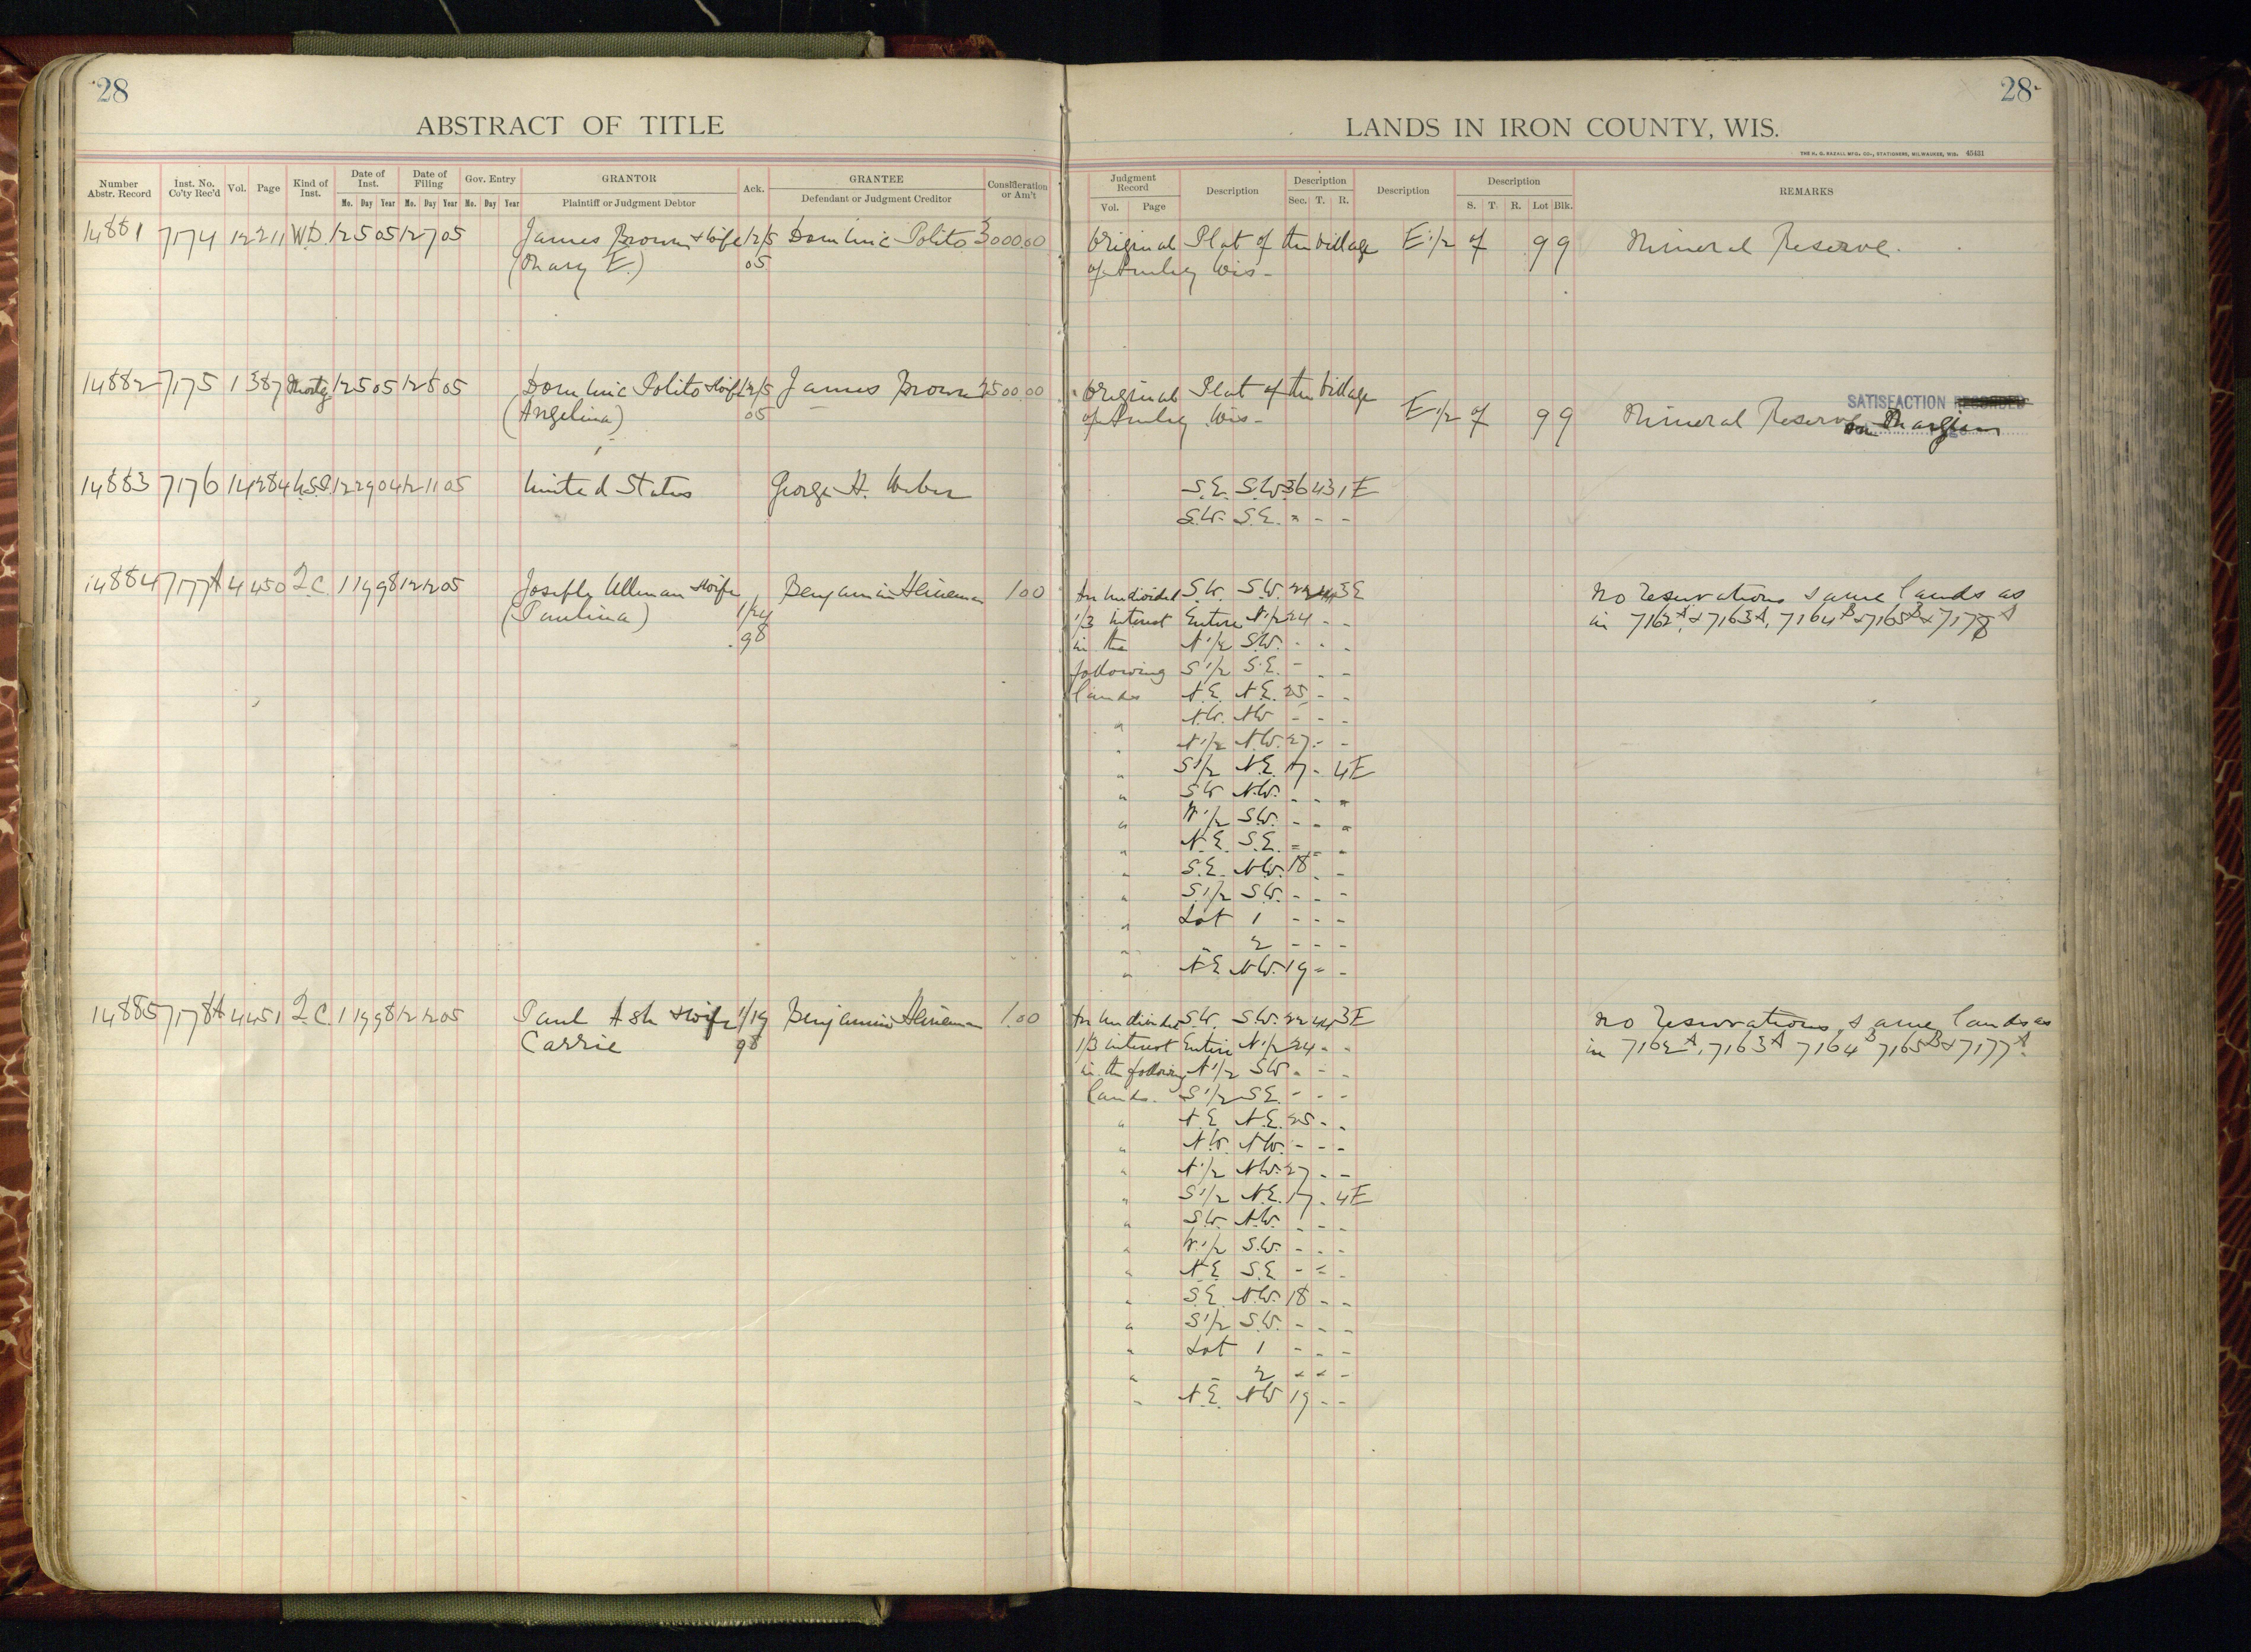 28
28
ABSTRACT OF TITLE
LANDS IN IRON COUNTY, WIS.
THE H. G. RAZALL MFG. CO., STATIONERS, MILWAUKEE, WIS. 45431
Number Abstr. Record Inst. No. Co'ty Rec'd Vol. Page Kind of Inst. Date of Inst. Mo. Day Year Date of Filing Mo. Day Year Gov. Entry Mo. Day Year GRANTOR Plaintiff or Judgment Debtor Ack. GRANTEE Defendant or Judgment Creditor Consideration or Am't
Judgment Record Vol. Page Description Description Sec. T. R. Description Description S. T. R. Lot Blk. REMARKS
14881 7174 12 211 W.D. 12 5 05 12 7 05 James Brown & wife 12/5 Dominic Polito 3000.00 Original Plat of the Village E 1/2 of 9 9 Mineral Reserve.
(Mary E.) 05 of Hurley Wis-
14882 7175 1 387 Mortg 12 5 05 12 8 05 Dominic Polito & wife 12/5 James Brown 2500.00 Original Plat of the Village SATISFACTION RECORDED
(Angelina) 05 of Hurley Wis- E 1/2 of 9 9 Mineral Reserve on Margin
14883 7176 14 284 U.S.P. 12 29 04 12 11 05 United States George H. Weber S.E. S.W. 36 43 1 E
S.W. S.E. " - -
14884 7177A 4 450 Q.C. 1 19 98 12 12 05 Joseph Ullman & wife Benjamin Heineman 1.00 An undivided S.W. S.W. 22 44 3E No reservations same lands as
(Paulina) 1/24 1/3 interest Entire N 1/2 24 - - in 7162A & 7163A, 7164B & 7165B & 7178A
98 in the N 1/2 S.W. - - -
following S 1/2 S.E. - - -
lands N.E. N.E. 25 - -
" N.W. N.W. - - -
" N 1/2 N.W. 27 - -
" S 1/2 N.E. 17 - 4E
" S.W. N.W. - - "
" W 1/2 S.W. - - "
" N.E. S.E. - - -
" S.E. N.W. 18 - -
" S 1/2 S.W. - - -
" Lot 1 - - -
" - 2 - - -
" N.E. N.W. 19 - -
14885 7178A 4 451 Q.C. 1 19 98 12 12 05 Paul Ash & wife 1/19 Benjamin Heineman 1.00 An undivided S.W. S.W. 22 44 3E No reservations, same lands as
Carrie 98 1/3 interest Entire N 1/2 24 - - in 7162A, 7163A 7164B 7165B & 7177A.
in the following N 1/2 S.W. - - -
lands. S 1/2 S.E. - - -
" N.E. N.E. 25 - -
" N.W. N.W. - - -
" N 1/2 N.W. 27 - -
" S 1/2 N.E. 17 - 4E
" S.W. N.W. - - -
" W 1/2 S.W. - - -
" N.E. S.E. - - -
" S.E. N.W. 18 - -
" S 1/2 S.W. - - -
" Lot 1 - - -
" - 2 - - -
" N.E. N.W. 19 - -